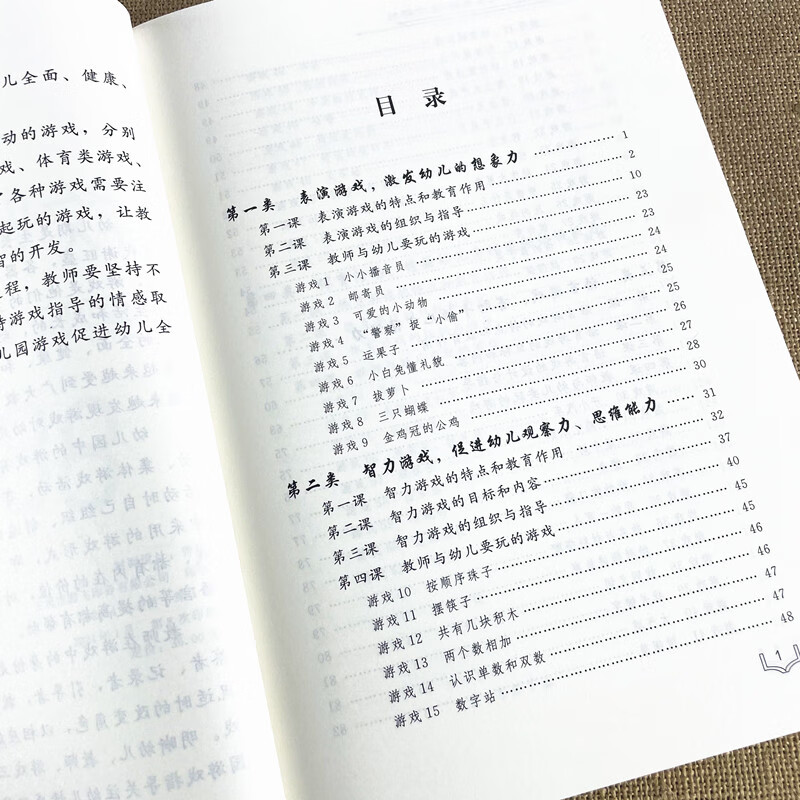 儿全面、健康、
动的游戏，分别
戏、体育类游戏、
各种游戏需要注
起玩的游戏，让教
智的开发。
程，教师要坚持不
持游戏指导的情感取
儿园游戏促进幼儿全
目 录
第一类 表演游戏，激发幼儿的想象力 …… 1
第一课 表演游戏的特点和教育作用 …… 2
第二课 表演游戏的组织与指导 …… 10
第三课 教师与幼儿要玩的游戏 …… 23
游戏1 小小播音员 …… 23
游戏2 邮寄员 …… 24
游戏3 可爱的小动物 …… 24
游戏4 “警察”捉“小偷” …… 25
游戏5 运果子 …… 25
游戏6 小白兔懂礼貌 …… 26
游戏7 拔萝卜 …… 27
游戏8 三只蝴蝶 …… 28
游戏9 金鸡冠的公鸡 …… 30
第二类 智力游戏，促进幼儿观察力、思维能力 …… 31
第一课 智力游戏的特点和教育作用 …… 32
第二课 智力游戏的目标和内容 …… 37
第三课 智力游戏的组织与指导 …… 40
第四课 教师与幼儿要玩的游戏 …… 45
游戏10 按顺序珠子 …… 45
游戏11 摆筷子 …… 46
游戏12 共有几块积木 …… 46
游戏13 两个数相加 …… 47
游戏14 认识单数和双数 …… 47
游戏15 数字站 …… 48
1